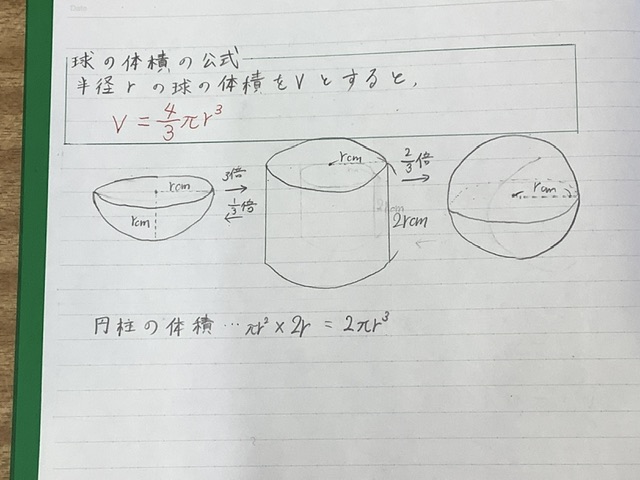 球の体積の公式
半径rの球の体積をVとすると、
V = 4/3 πr³
rcm
rcm
3倍
1/3倍
rcm
2rcm
2/3倍
rcm
円柱の体積…πr² × 2r = 2πr³